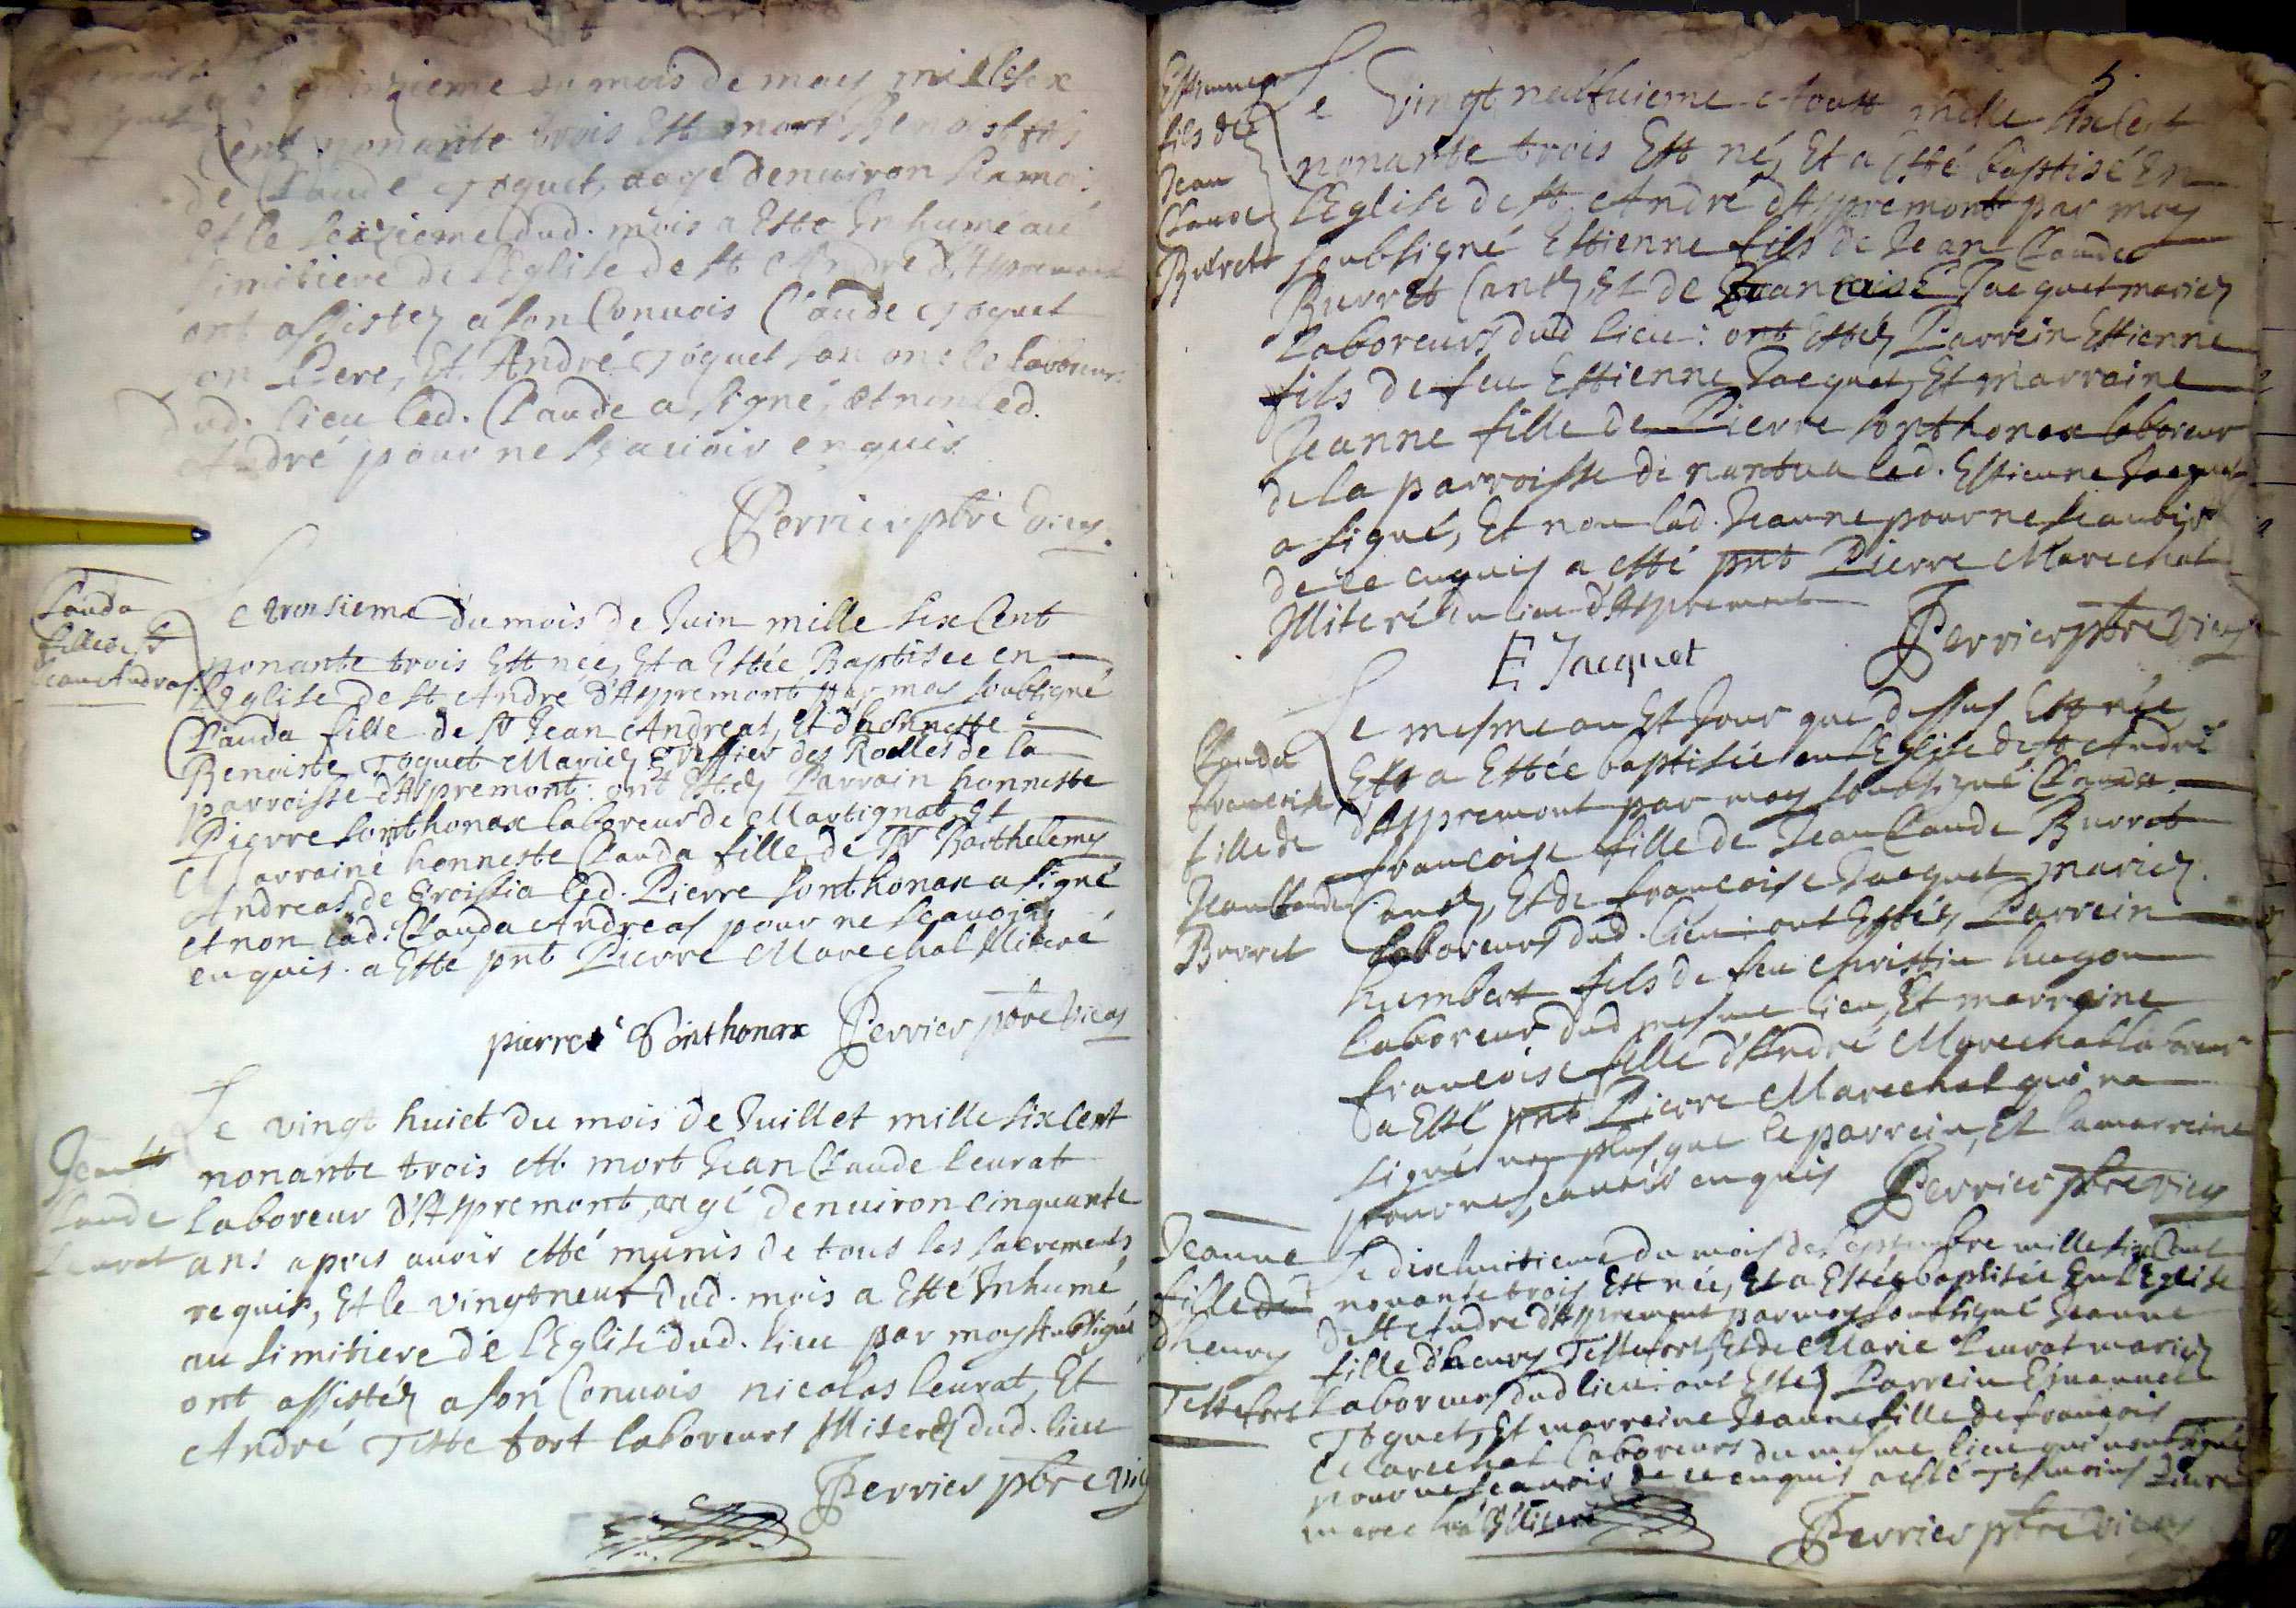 Le quinzieme du mois de may mille six
Cent nonante trois Est mort Benoist fils
de Claude Joquet, aagé denuiron six mois
et le seizieme dud. mois a Esté Inhumé au
simitiere de l'Eglise de st André d'Appremont
ont assistez a son Conuois Claude Joquet
son Pere, Et André Joquet son oncle laboreurs
dud. lieu led. Claude a signé, et non led.
André pour ne sçauoir enquis
Perrier pbre vicay.
Clauda
fille de sr
Jean Andreas
Le troisieme du mois de Juin mille six Cent
nonante trois Est née, Et a Estée Baptisee en
l'Eglise de st André d'Appremont par moy soubsigné
Clauda fille de sr Jean Andreat, Et d'honneste
Benoiste Joquet Mariez Greffier des Rolles de la
parroisse d'Appremont: ont Estéz Parrain honneste
Pierre Sonthonax laboreur de Martignat, Et
Marraine honneste Clauda fille de sr Barthelemy
Andreas de Groissia led. Pierre Sonthonax a signé
et non lad. Clauda Andreas pour ne sçauoir
enquis. a Esté pnt Pierre Marechal Illiteré
pierre Sonthonax Perrier pbre Vicay
Jean
Claude
Leurat
Le vingt huict du mois de Juillet mille six cent
nonante trois est mort Jean Claude Leurat
laboreur d'Appremont, aagé denuiron cinquante
ans apres auoir esté munis de tous les sacrements
requis, Et le vingtneuf dud. mois a Esté Inhumé
au simitiere de l'Eglise dud. lieu par moy soubsigné
ont assistéz a son Conuois nicolas Leurat, Et
André Teste fort laboreurs Illiteréz dud. lieu
Perrier pbre vic
5.
Estienne
fils de
Jean
Claude
Burret
Le vingt neufuieme Aoust mille six Cent
nonante trois Est né, Et a Esté baptisé En
l'Eglise de st. André d'Appremont par moy
soubsigné Estienne fils de Jean Claude
Burret Et de Francoise Jacquet mariez
laboreurs dud lieu: ont Estéz Parrein Estienne
fils de feu Estienne Jacquet, Et marraine
Jeanne fille de Pierre Sonthonax laboreur
de la parroisse de nantua led. Estienne Jacquet
a signé, Et non lad. Jeanne pour ne sçauoir
de ce enquis a esté pnt Pierre Marechal
Illiteré du lieu d'Appremont
E Jacquet Perrier pbre Vicay
Clauda
francoise
fille de
Jean Claude
Burret
Le mesme an Et Jour que dessus Est née
Et a Estée baptisée en l'Eglise de st André
d'Appremont par moy soubsigné Clauda
francoise fille de Jean Claude Burret
Et de francoise Jacquet mariez
laboreurs dud. lieu: ont Estéz Parrein
humbert fils de feu Christin hugon
laboreur dud mesme lieu, Et marraine
francoise fille d'André Marechal laboreur
a Esté pnt Pierre Marechal qui na
signé non plus que le parrein, Et la marreine
pour ne sçauoir enquis Perrier pbre vicay
Jeanne
fille de
d'henry
Testefort
Le dixhuitieme du mois de septembre mille six Cent
nonante trois Est née, Et a Estée baptisée En l'Eglise
de st André d'Appremont par moy soubsigné Jeanne
fille d'henry Testefort, Et de Marie Leurat mariez
laboreurs dud lieu: ont Estez Parrein Emanuel
Joquet, Et marreine Jeanne fille de francois
Marechal laboreurs du mesme lieu qui nont signé
pour ne sçauoir de ce enquis a esté Tesmoins Pierre
marechal Illiteré
Perrier pbre vicay